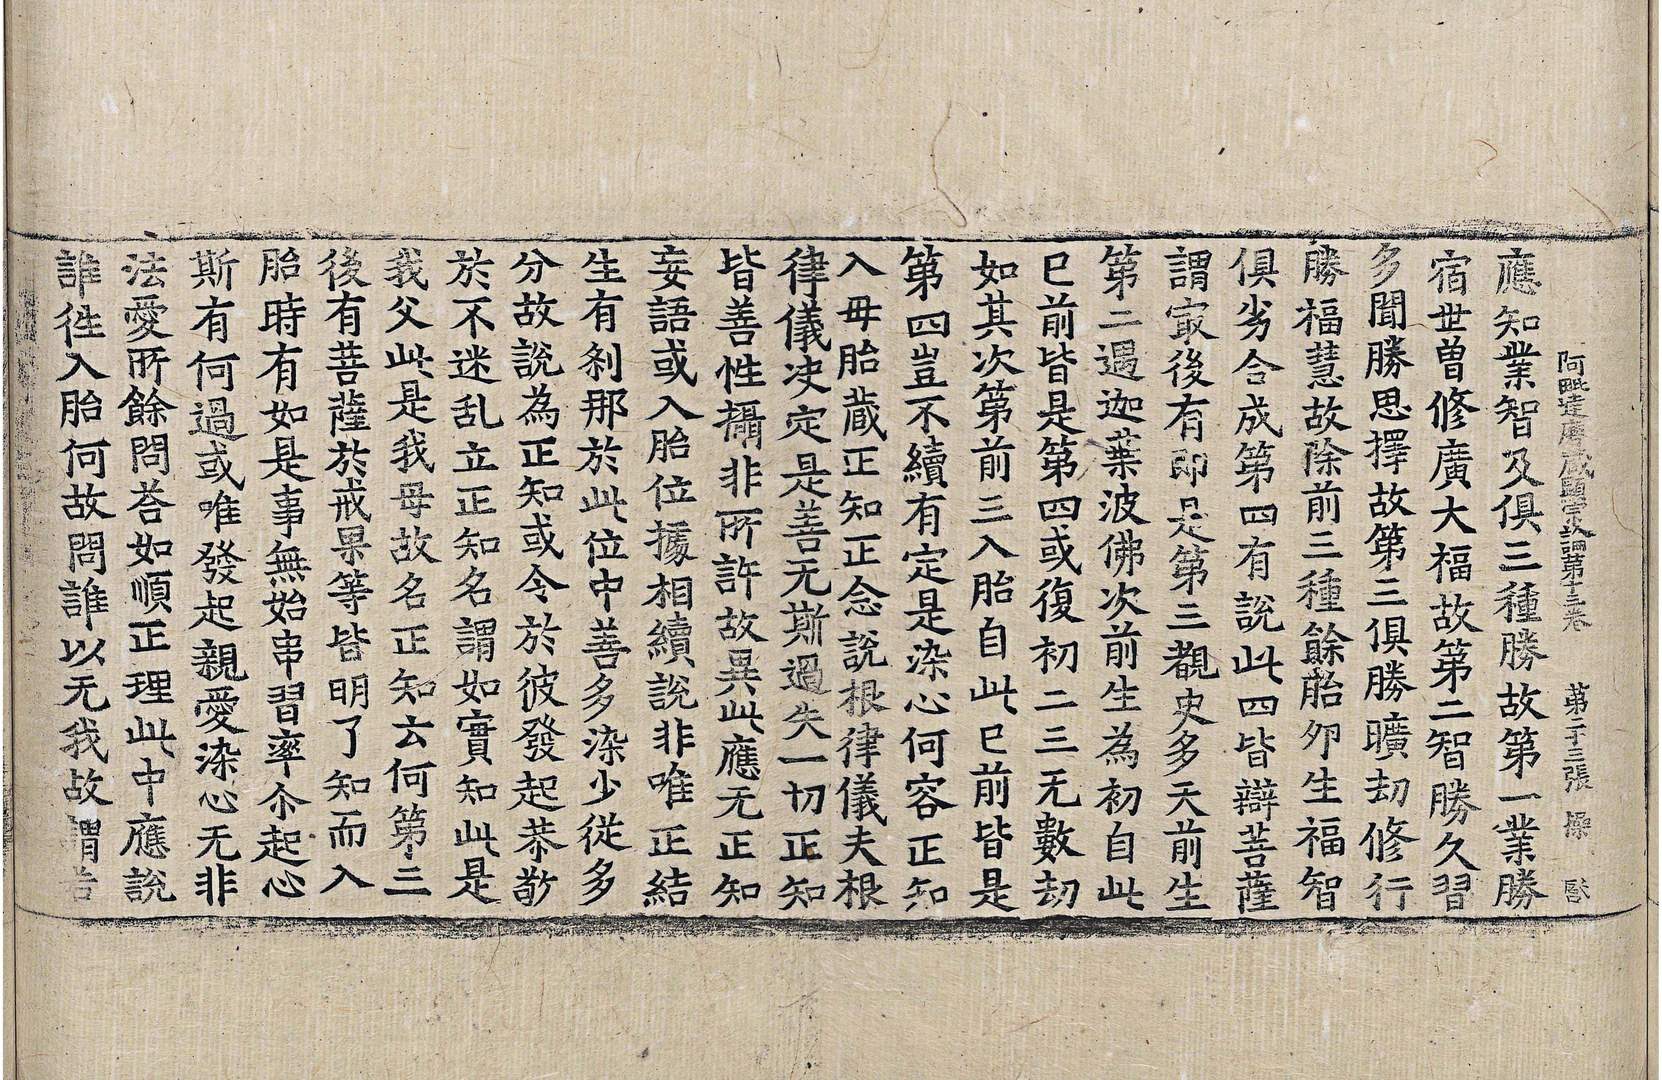 阿毗達磨藏顯宗論第十三卷 第二十三張 操
應知業智及俱三種勝故第一業勝
宿世曽修廣大福故第二智勝久習
多聞勝思擇故第三俱勝曠劫修行
勝福慧故除前三種餘胎卵生福智
俱劣合成第四有說此四皆辯菩薩
謂㝡後有即是第三覩史多天前生
第二遇迦葉波佛次前生為初自此
已前皆是第四或復初二三无數劫
如其次第前三入胎自此已前皆是
第四豈不續有定是染心何容正知
入母胎藏正知正念說根律儀夫根
律儀决定是善无斯過失一切正知
皆善性攝非所許故異此應无正知
妄語或入胎位據相續說非唯正結
生有刹那於此位中善多染少從多
分故說為正知或令於彼發起恭敬
於不迷乱立正知名謂如實知此是
我父此是我母故名正知云何第二
後有菩薩於戒果等皆明了知而入
胎時有如是事無始串習率尒起心
斯有何過或唯發起親愛染心无非
法愛所餘問荅如順正理此中應說
誰徃入胎何故問誰以无我故謂若